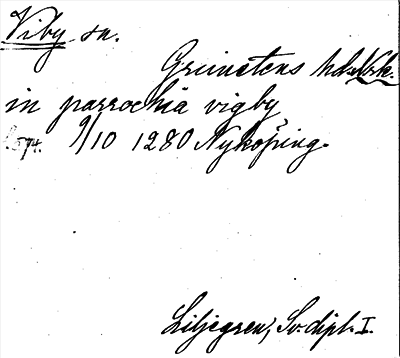 Viby sn.
Grimstens hd. Nrk.
in parrochia vigby
9/10 1280 Nyköping.
Liljegren, Sv. dipl. I.